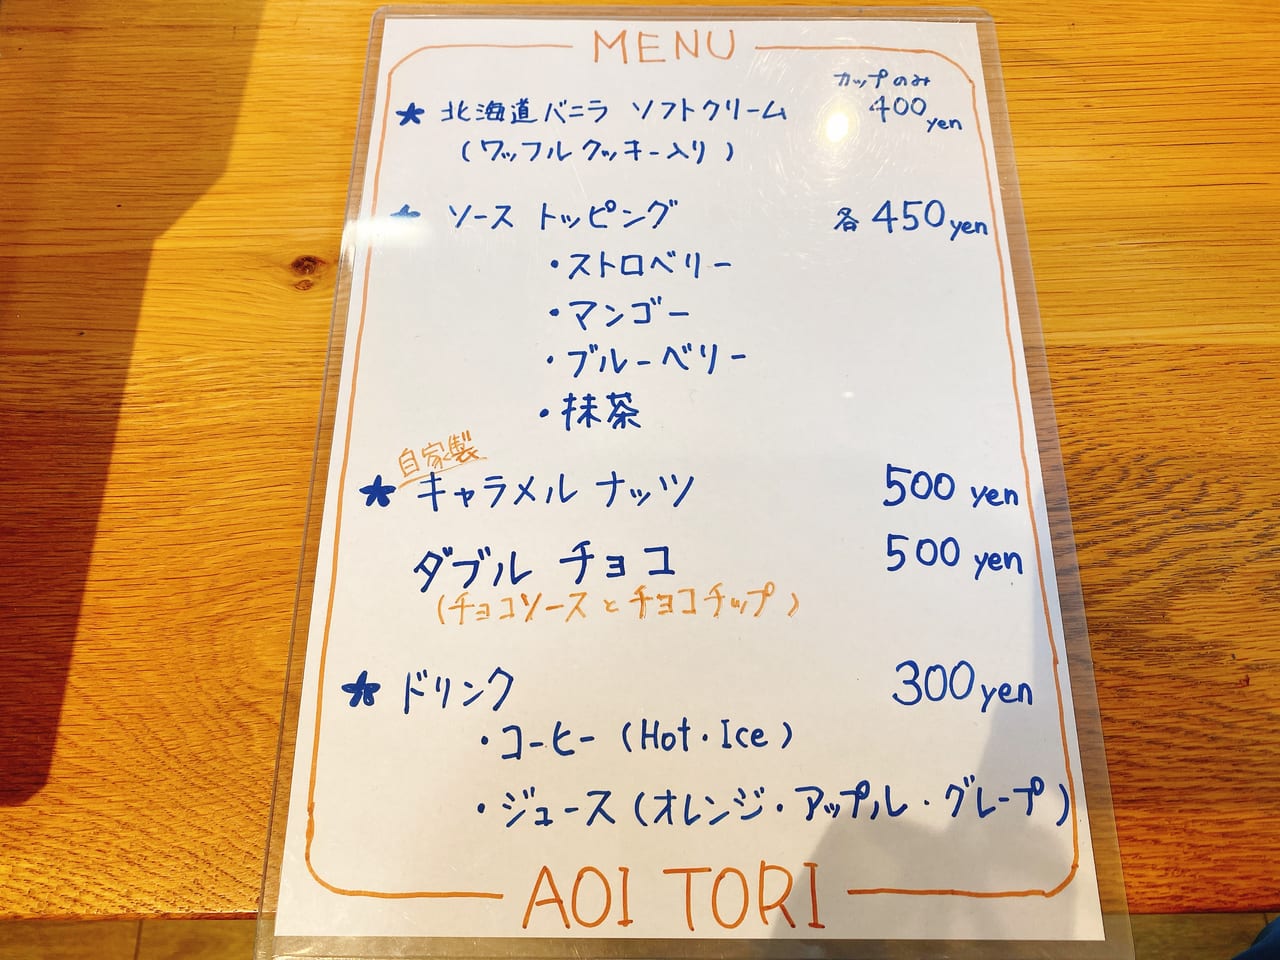 MENU
カップのみ
★ 北海道バニラ ソフトクリーム 400yen
(ワッフルクッキー入り)
★ ソース トッピング 各450yen
・ストロベリー
・マンゴー
・ブルーベリー
・抹茶
自家製
★ キャラメル ナッツ 500 yen
ダブル チョコ 500 yen
(チョコソースとチョコチップ)
★ ドリンク 300yen
・コーヒー (Hot・Ice)
・ジュース (オレンジ・アップル・グレープ)
AOI TORI